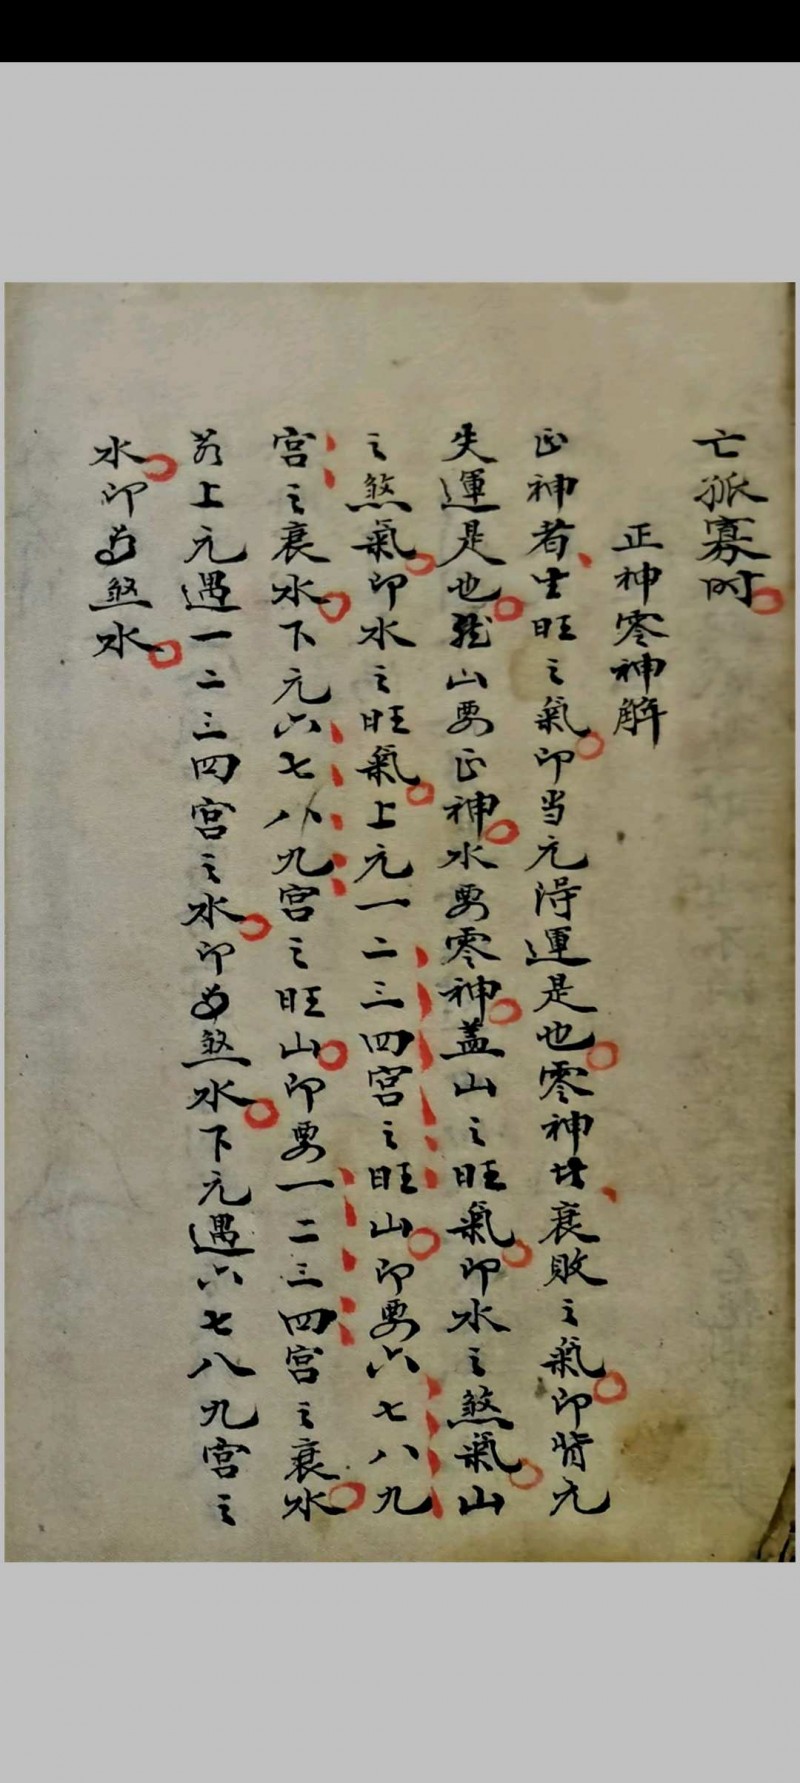 亡孤寡时
正神零神解
正神者生旺之氣即当元得运是也零神者衰敗之氣即背元
失運是也龍山要正神水要零神盖山之旺氣即水之煞氣山
之煞氣即水之旺氣上元一二三四宮之旺山即要六七八九
宮之衰水下元六七八九宮之旺山即要一二三四宮之衰水
若上元遇一二三四宮之水即为煞水下元遇六七八九宮之
水即为煞水